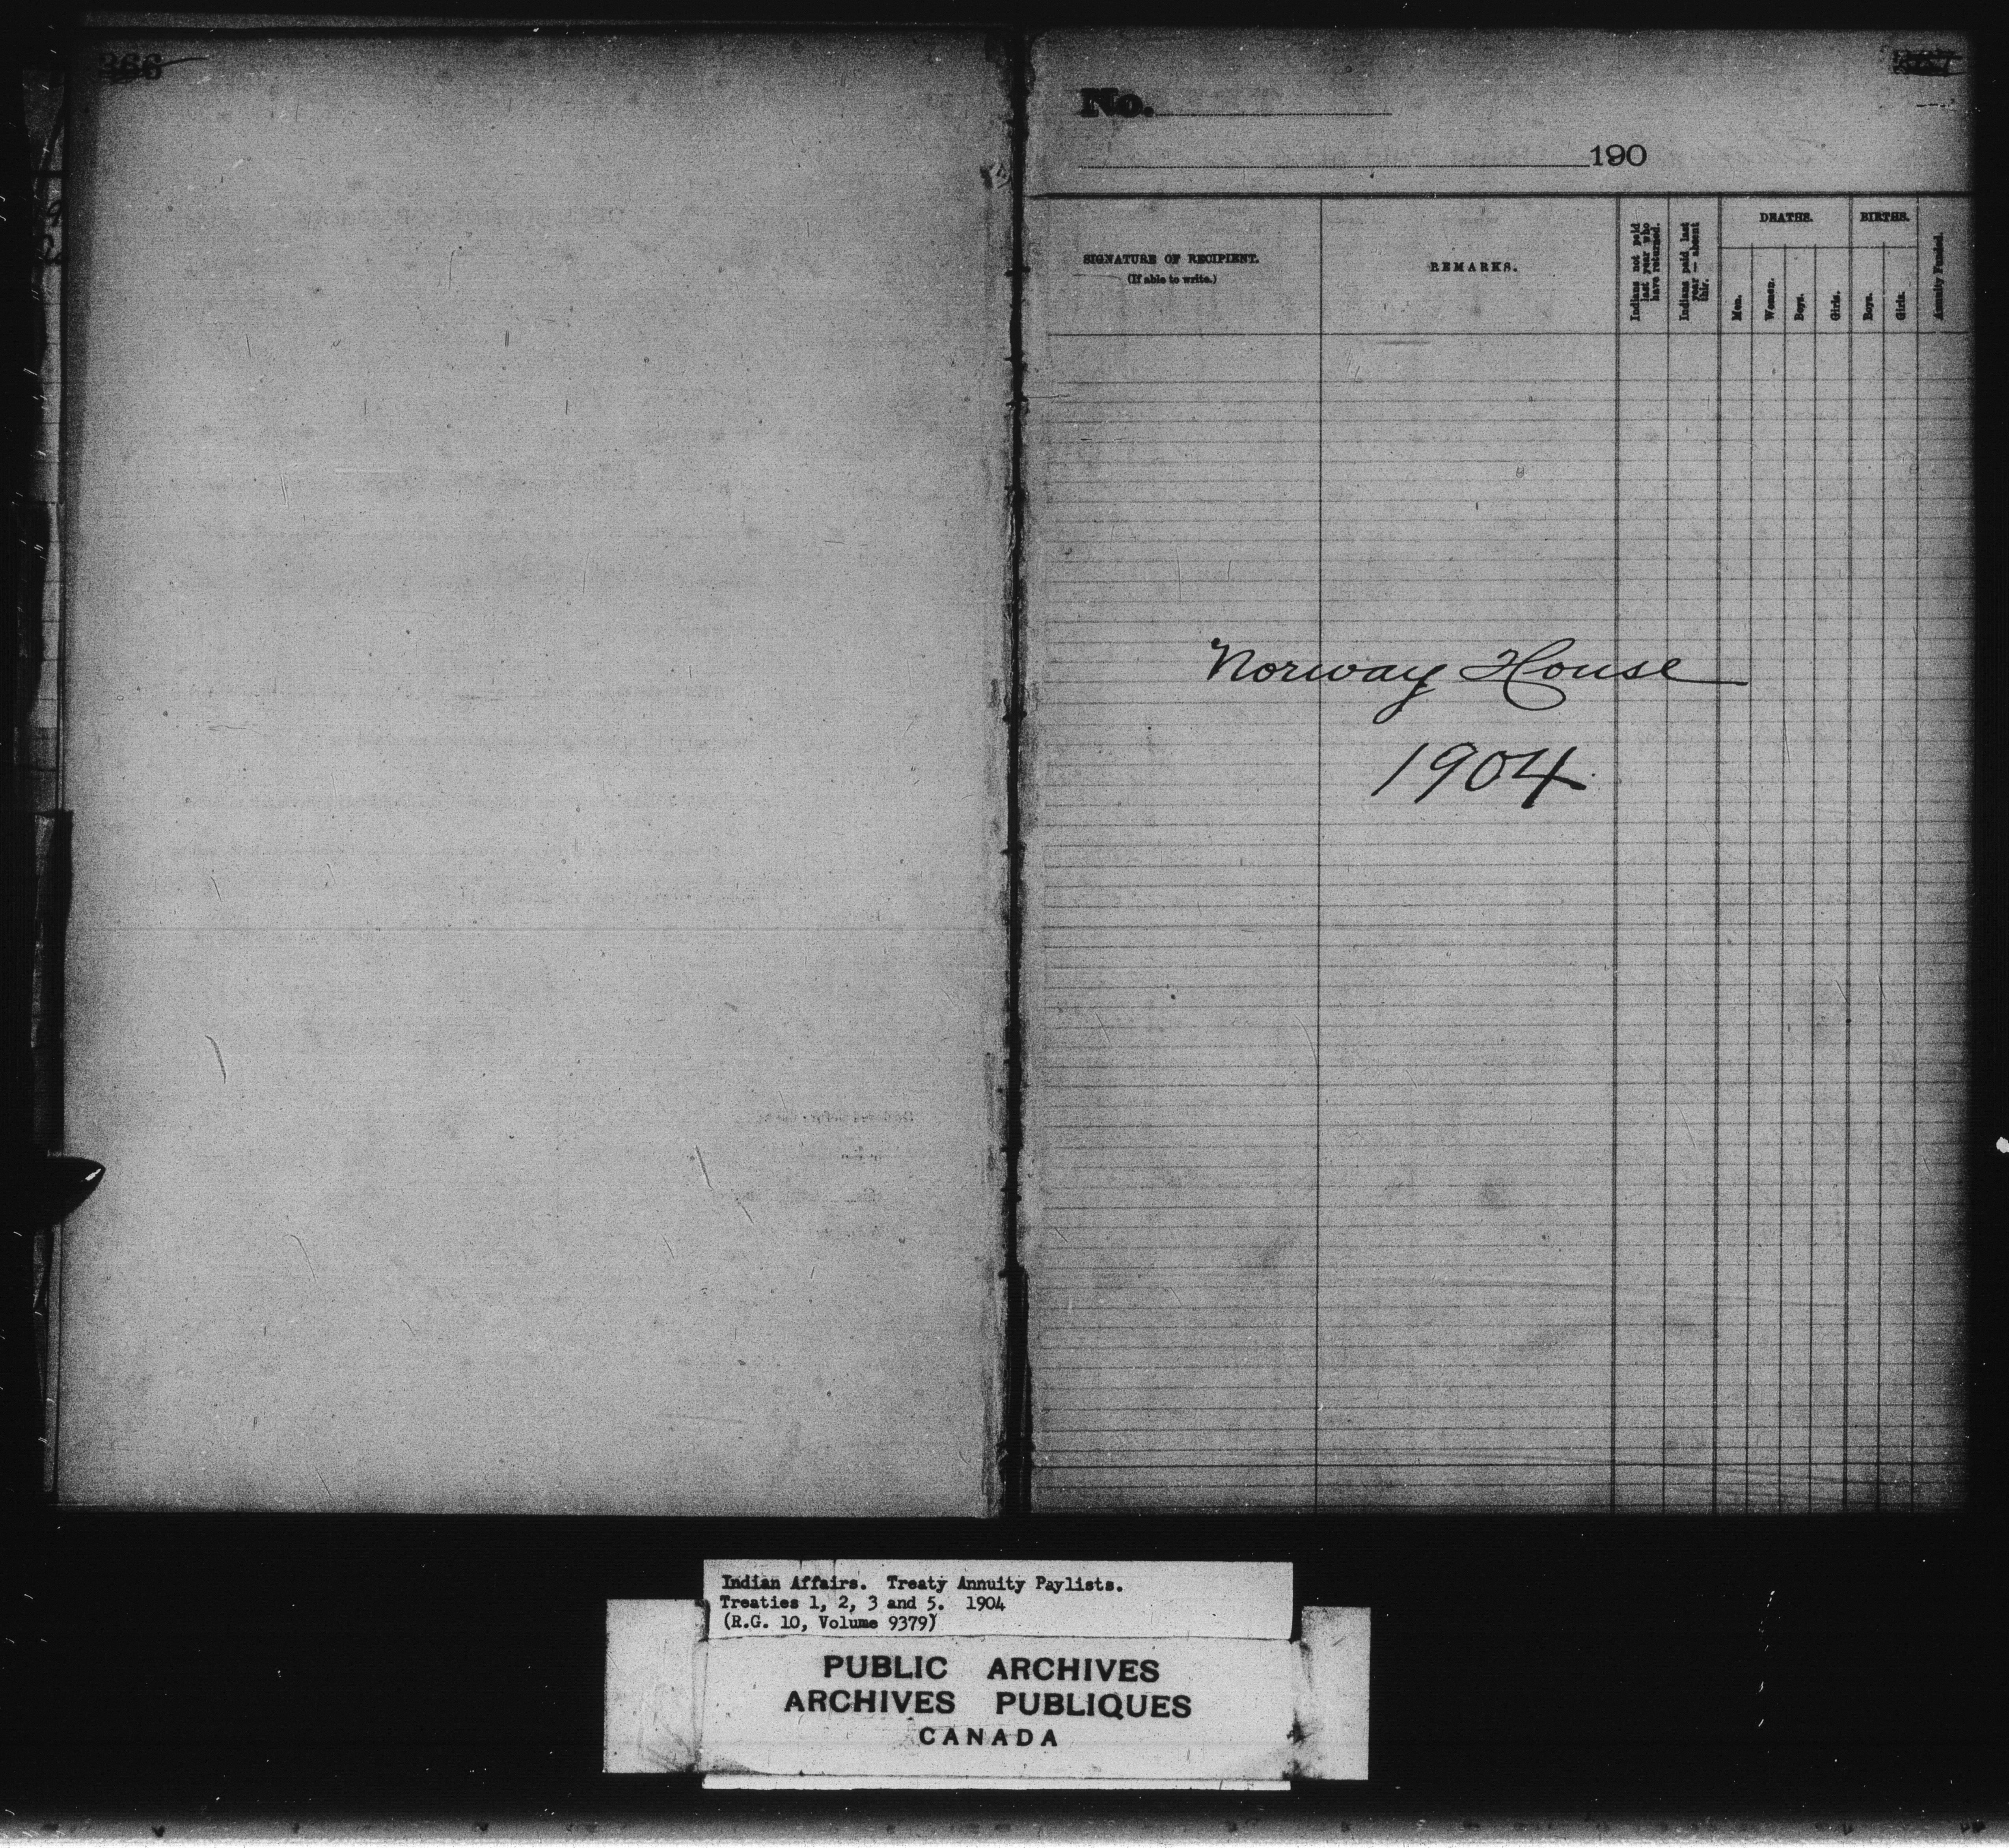 366
No.
190
SIGNATURE OF RECIPIENT.
(If able to write.)
REMARKS.
Indians not paid
last year who
have returned.
Indians paid last
year — absent
this.
DEATHS.
Men.
Women.
Boys.
Girls.
BIRTHS.
Boys.
Girls.
Annuity Funded.
Norway House
1904
Indian Affairs. Treaty Annuity Paylists.
Treaties 1, 2, 3 and 5. 1904
(R.G. 10, Volume 9379)
PUBLIC ARCHIVES
ARCHIVES PUBLIQUES
CANADA